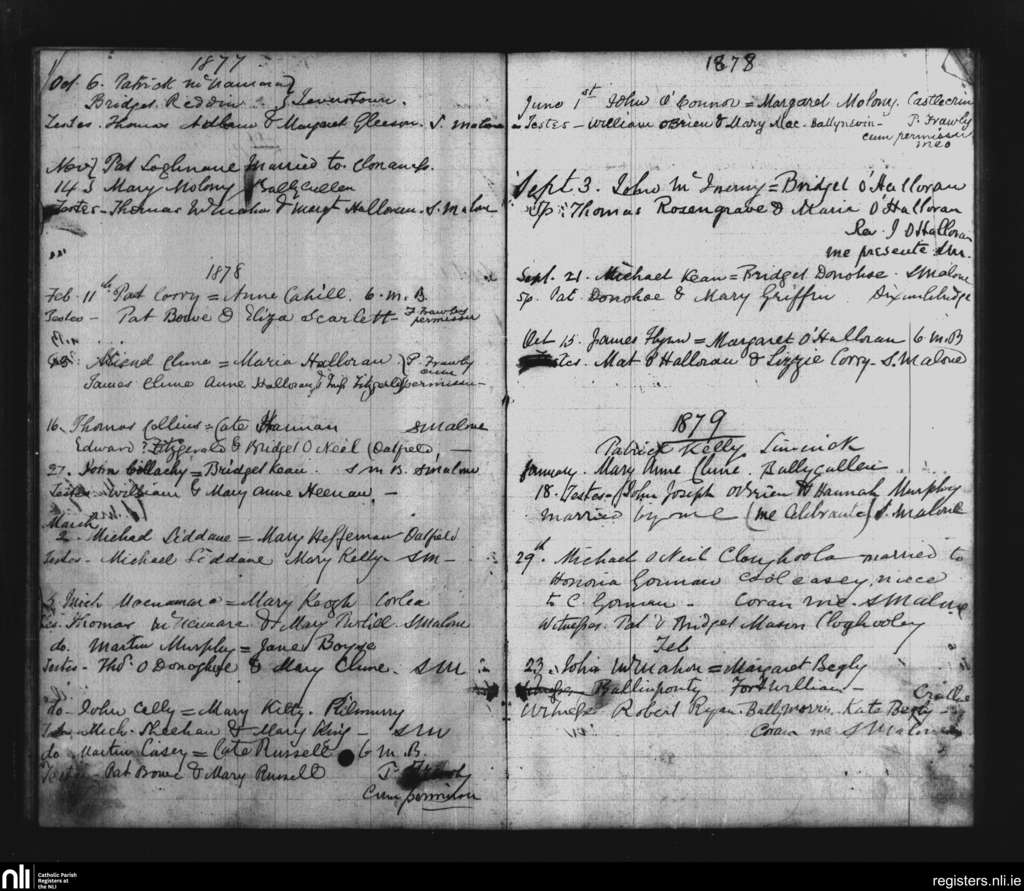 1877
Oct 6. Patrick McNamara
Bridget Reddin Leverstown.
Testes - Thomas & Margaret Gleeson. S. Malone
Nov Pat Loghnane Married to Clonanfo.
14 Mary Molony Ballycullen
Testes - Thomas & Margt Halloran. S. Malone
1878
Feb. 11th Pat Corry = Anne Cahill. 6. m. B.
Testes - Pat Bowe & Eliza Scarlett - T Frawley
permissu
Clune = Maria Halloran P. Frawley
cum
James Clune Anne Halloran & Fitzgerald permissu
16. Thomas Collins = Cate Hannan S Malone
Edward Fitzgerald & Bridget O Neil (Oatfield) -
27. John = Bridget Kean. S M B. S Malone
Testes - William & Mary Anne Heenan. -
March
2. Michael Liddane = Mary Heffernan Oatfield
Testes - Michael Liddane Mary Kelly - SM -
5 Mich Macnamara = Mary Keogh Corlea
Thomas & Mary S Malone
do. Martin Murphy = Jane Boyse
Testes - Thos. O Donoghue & Mary Clune. SM
do - John = Mary
Mich. Sheehan & Mary King - SM
do Martin Casey = Cate Russell 6 m. B.
Testes - Pat Bowe & Mary Russell P. Frawly
cum permission
1878
June 1st John O'Connor = Margaret Molony. Castlecrin
Testes - William O'Brien & Mary Mac - P. Frawley
cum permissu
meo
Sept 3. John McInerny = Bridget O'Halloran
Sp: Thomas Rosengrave & Maria O'Halloran
Rev. J O'Halloran
me presente S.M.
Sept. 21. Michael Kean = Bridget Donohoe. S Malone
Sp. Pat Donohoe & Mary Griffin Sixmilebridge
Oct 15. James Flynn = Margaret O'Halloran 6 m. B
Testes. Mat O'Halloran & Lizzie Corry - S. Malone
1879
Patrick Kelly Limerick
January. Mary Anne Clune. Ballycullen
18. Testes - John Joseph O'Brien & Hannah Murphy
married by me (me Celebrante) S. Malone
29th. Michael O Neil Cloughoola married to
Honoria Gorman Coolcasey, niece
to C. Gorman - Coram me. S Malone
Witnesses. Pat & Bridget Mason Cloghooley
Feb
23. John McMahon = Margaret Begly
Ballinponty Fort William -
Witness Robert Ryan - Ballymorris Kate Begly - Cradle
Coram me S Malone
nli
Catholic Parish
Registers at
the NLI
registers.nli.ie